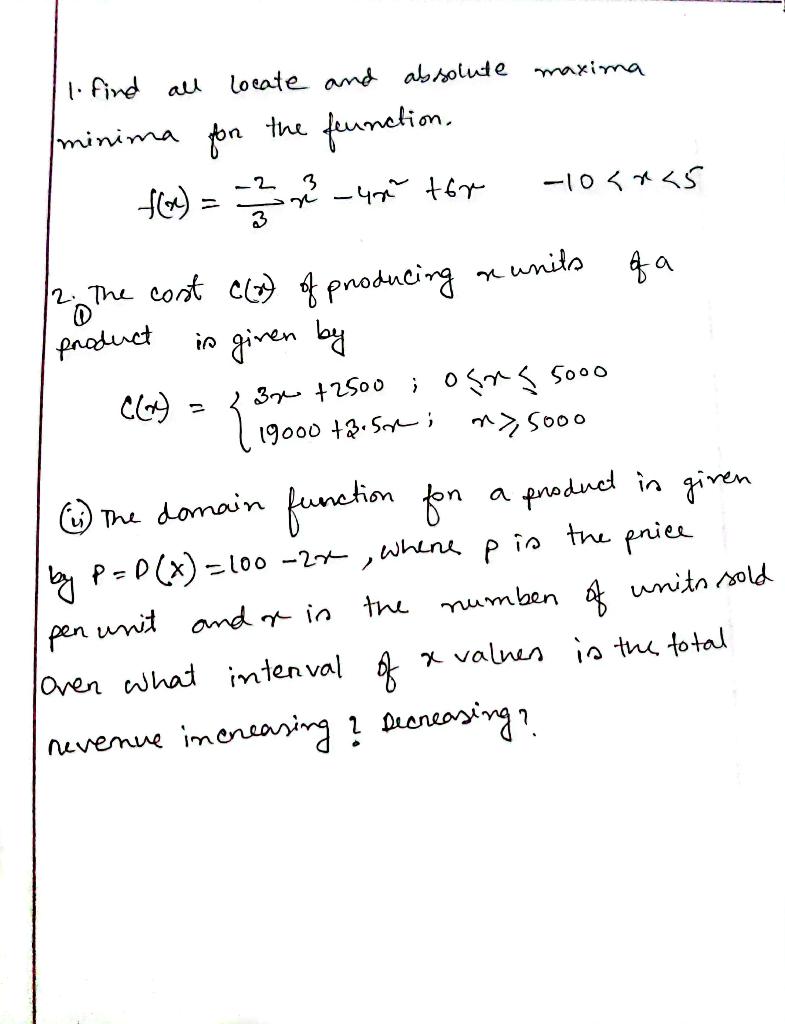 1. find all locate and absolute maxima
minima for the feunction.
f(x) = -2/3 x³ - 4x² + 6x    -10 < x < 5
2. ① The cost C(x) of producing x units of a
product is given by
C(x) = { 3x + 2500 ; 0 ≤ x ≤ 5000
19000 + 3.5x ; x ≥ 5000
(ii) The domain function for a product is given
by P = D(X) = 100 - 2x, where p is the price
per unit and x is the number of units sold
Over what interval of x values is the total
revenue increasing ? Decreasing ?